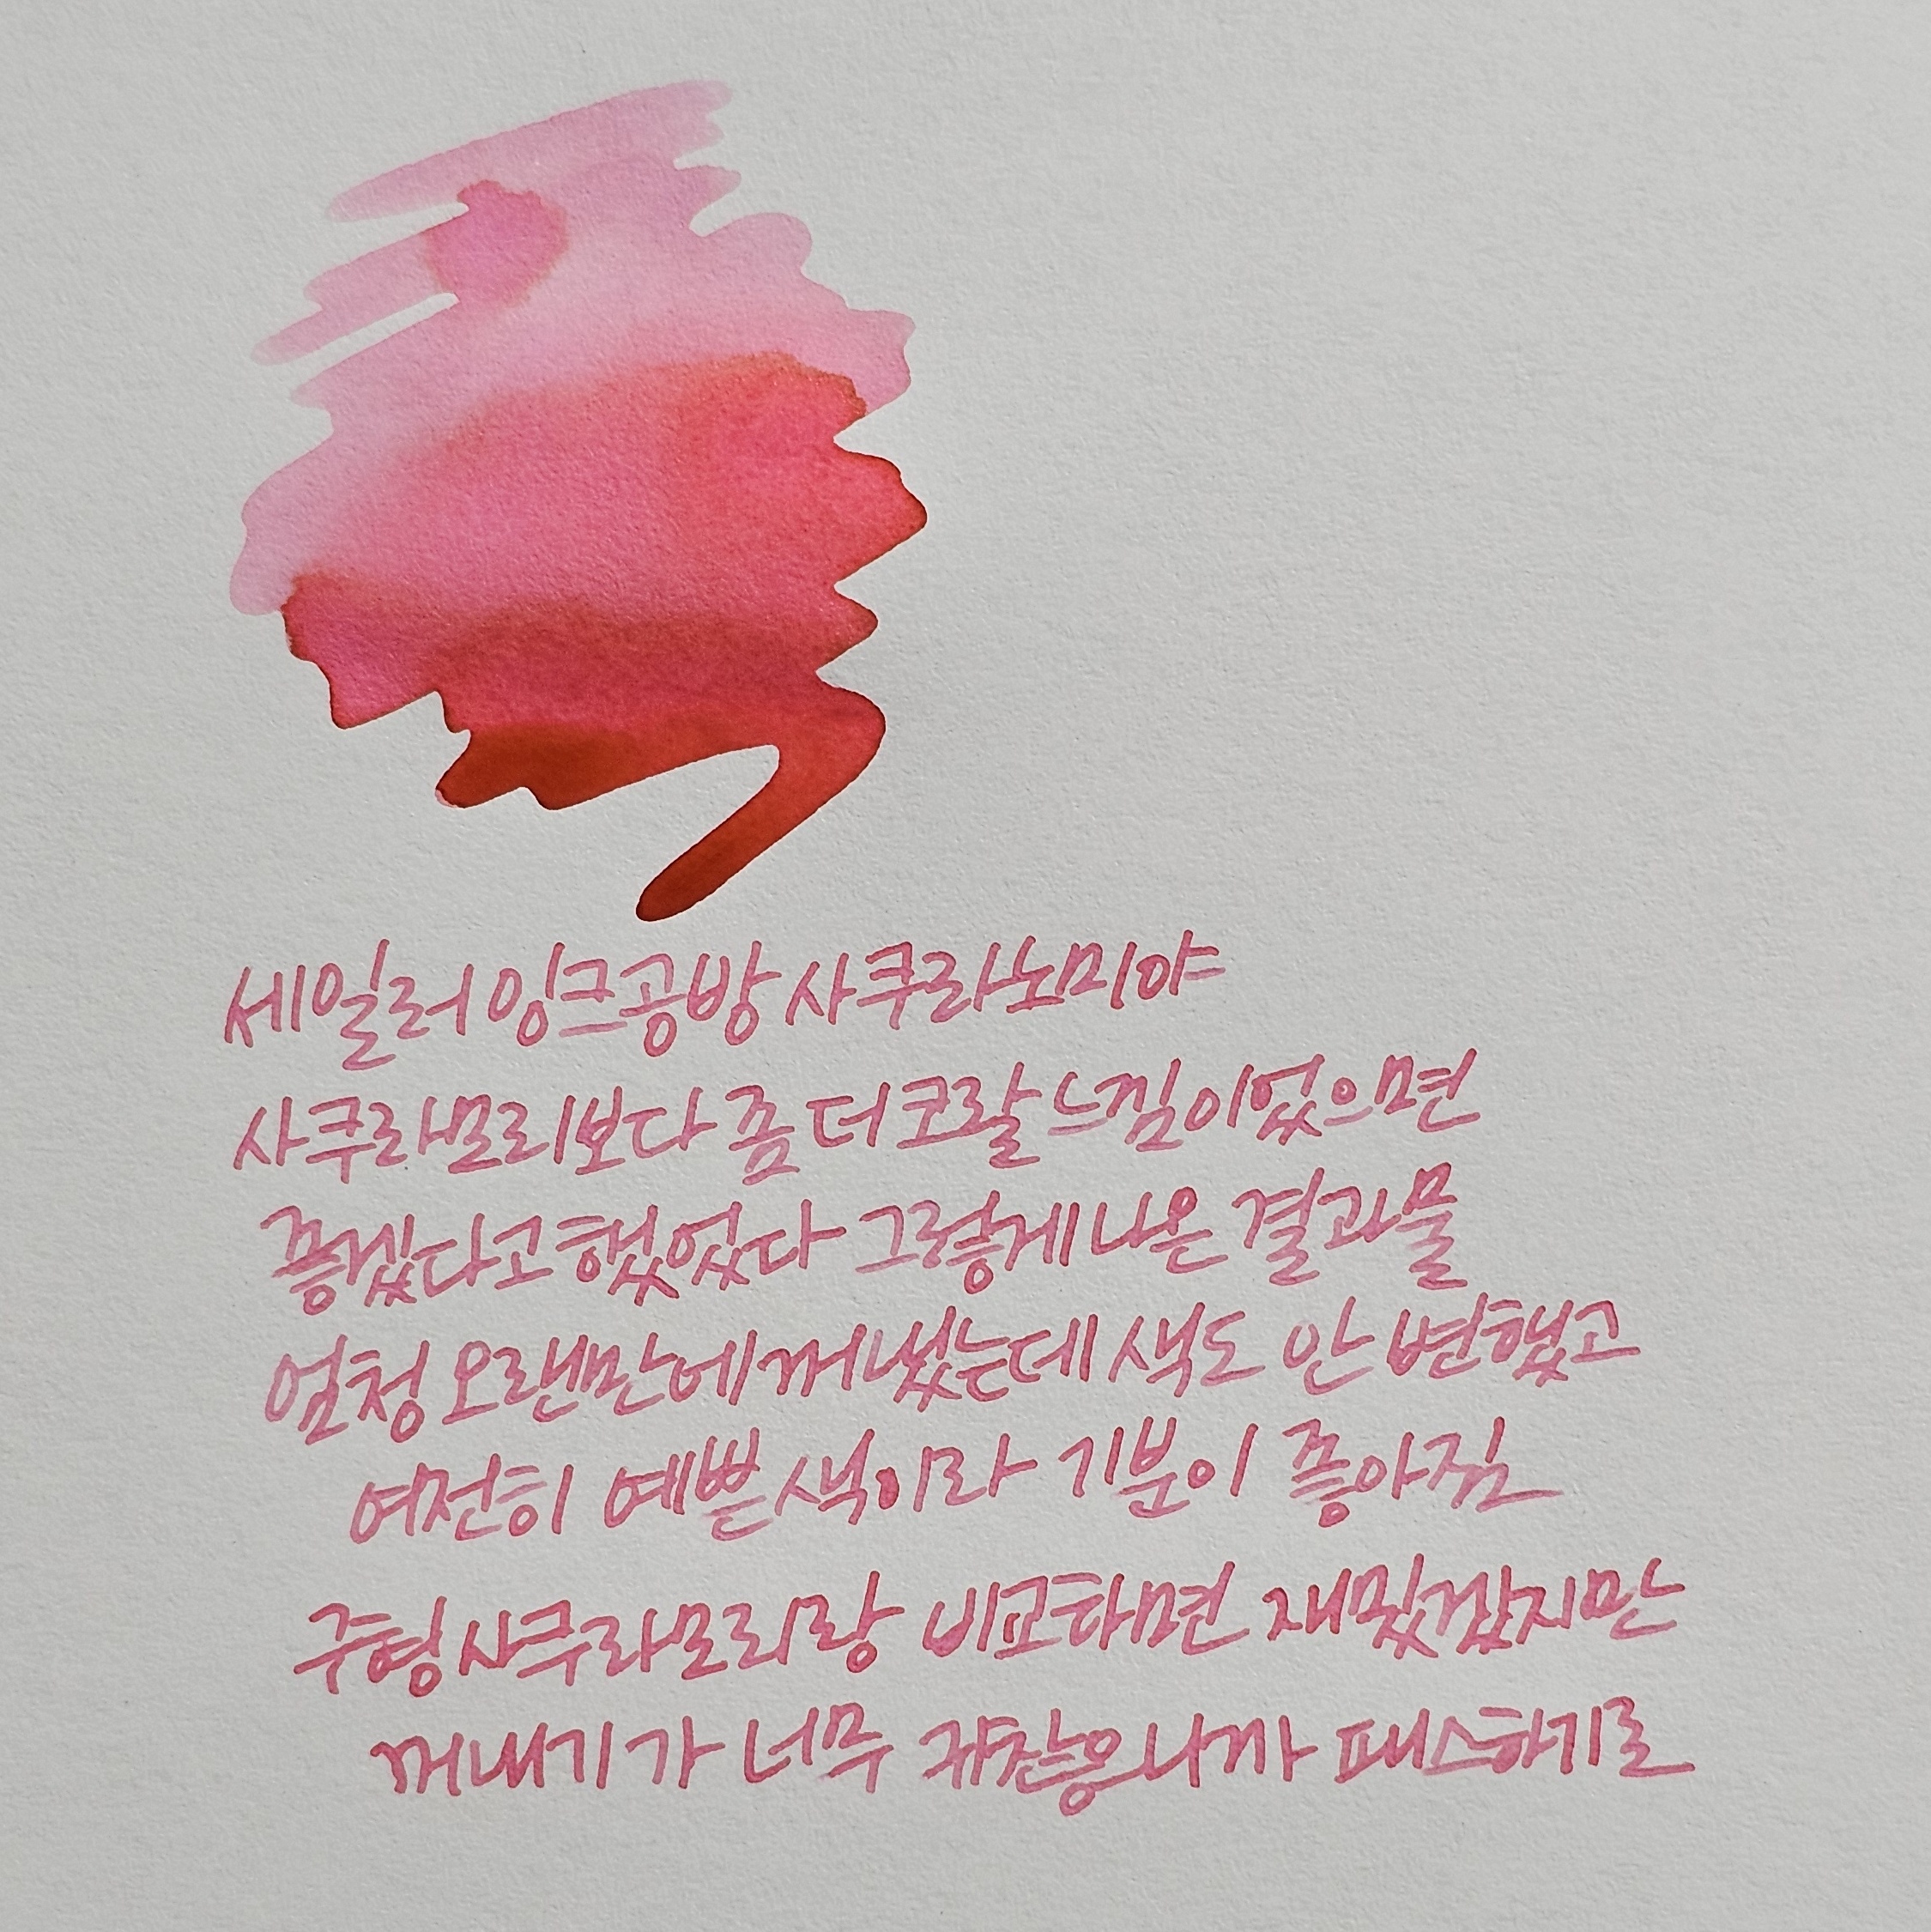 세일러 잉크공방 사쿠라노미야
사쿠라모리보다 좀 더 코랄 느낌이었으면
좋겠다고 했었다 그렇게 나온 결과물
엄청 오랜만에 꺼냈는데 색도 안 변했고
여전히 예쁜 색이라 기분이 좋아짐
구형 사쿠라모리랑 비교하면 재밌겠지만
꺼내기가 너무 귀찮으니까 패스하기로